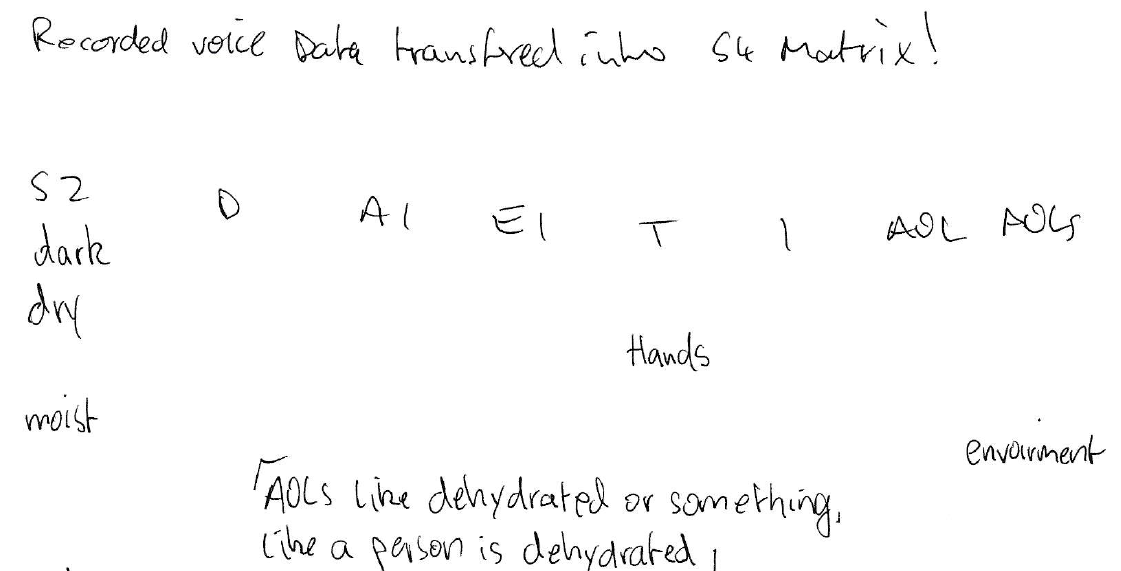 Recorded voice Data transfred into S4 Matrix!
S2 D AI EI T I AOL AOLs
dark
dry
Hands
moist
envoirment
AOLs like dehydrated or something,
like a person is dehydrated,